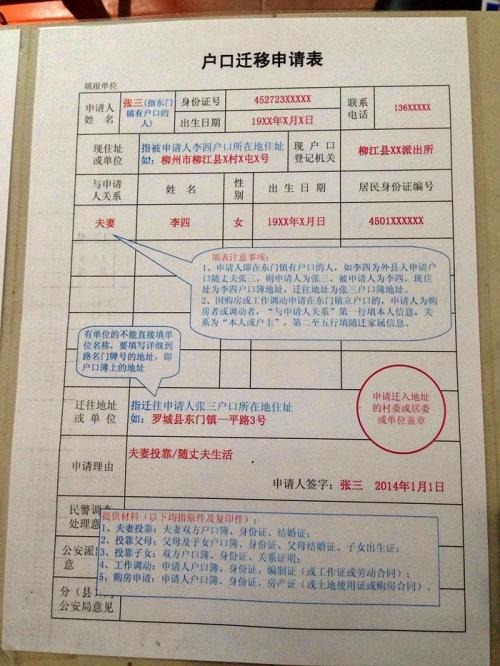 户口迁移申请表
填报单位
申请人
姓 名
张三(指东门
镇有户口的
人)
身份证号
452723XXXXX
联系
电话
136XXXXX
出生日期
19XX年X月X日
现住址
或单位
指被申请人李四户口所在地住址
如：柳州市柳江县X村X屯X号
现 户 口
登记机关
柳江县XX派出所
与申请
人关系
姓 名
性
别
出 生 日 期
居民身份证编号
夫妻
李四
女
19XX年X月X日
4501XXXXXX
填表注意事项：
1、申请人即在东门镇有户口的人，如李四为外县人申请户
口随丈夫张三，则申请人为张三，被申请人为李四，现住
址为李四户口簿地址，迁往地址为张三户口簿地址。
2、因购房或工作调动申请在东门镇立户口的，申请人为购
房者或调动者，“与申请人关系”第一行填本人信息，关
系为“本人或户主”。第二至五行填随迁家属信息。
有单位的不能直接填单
位名称，要填写详细到
路名门牌号的地址，即
户口簿上的地址
迁往地址
或 单 位
指迁往申请人张三户口所在地住址
如：罗城县东门镇一平路3号
申请迁入地址
的村委或居委
或单位盖章
申请理由
夫妻投靠/随丈夫生活
申请人签字：张三 2014年1月1日
民警调查
处理意
提供材料（以下均指原件及复印件）：
1、夫妻投靠：夫妻双方户口簿、身份证、结婚证；
2、投靠父母：父母及子女户口簿、身份证、父母结婚证、子女出生证；
3、投靠子女：双方户口簿、身份证、关系证明；
4、工作调动：申请人户口簿、身份证、编制证（或工作证或劳动合同）；
5、购房申请：申请人户口簿、身份证、房产证（或土地使用证或购房合同）。
公安派
意
分（县
公安局意见